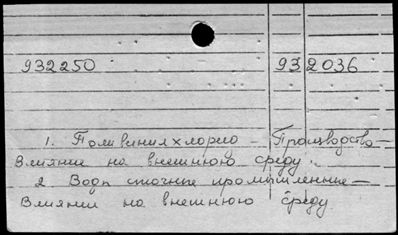 932250 932036
1. Поливинилхлорид – Производство –
Влияние на внешнюю среду.
2. Воды сточные промышленные –
Влияние на внешнюю среду